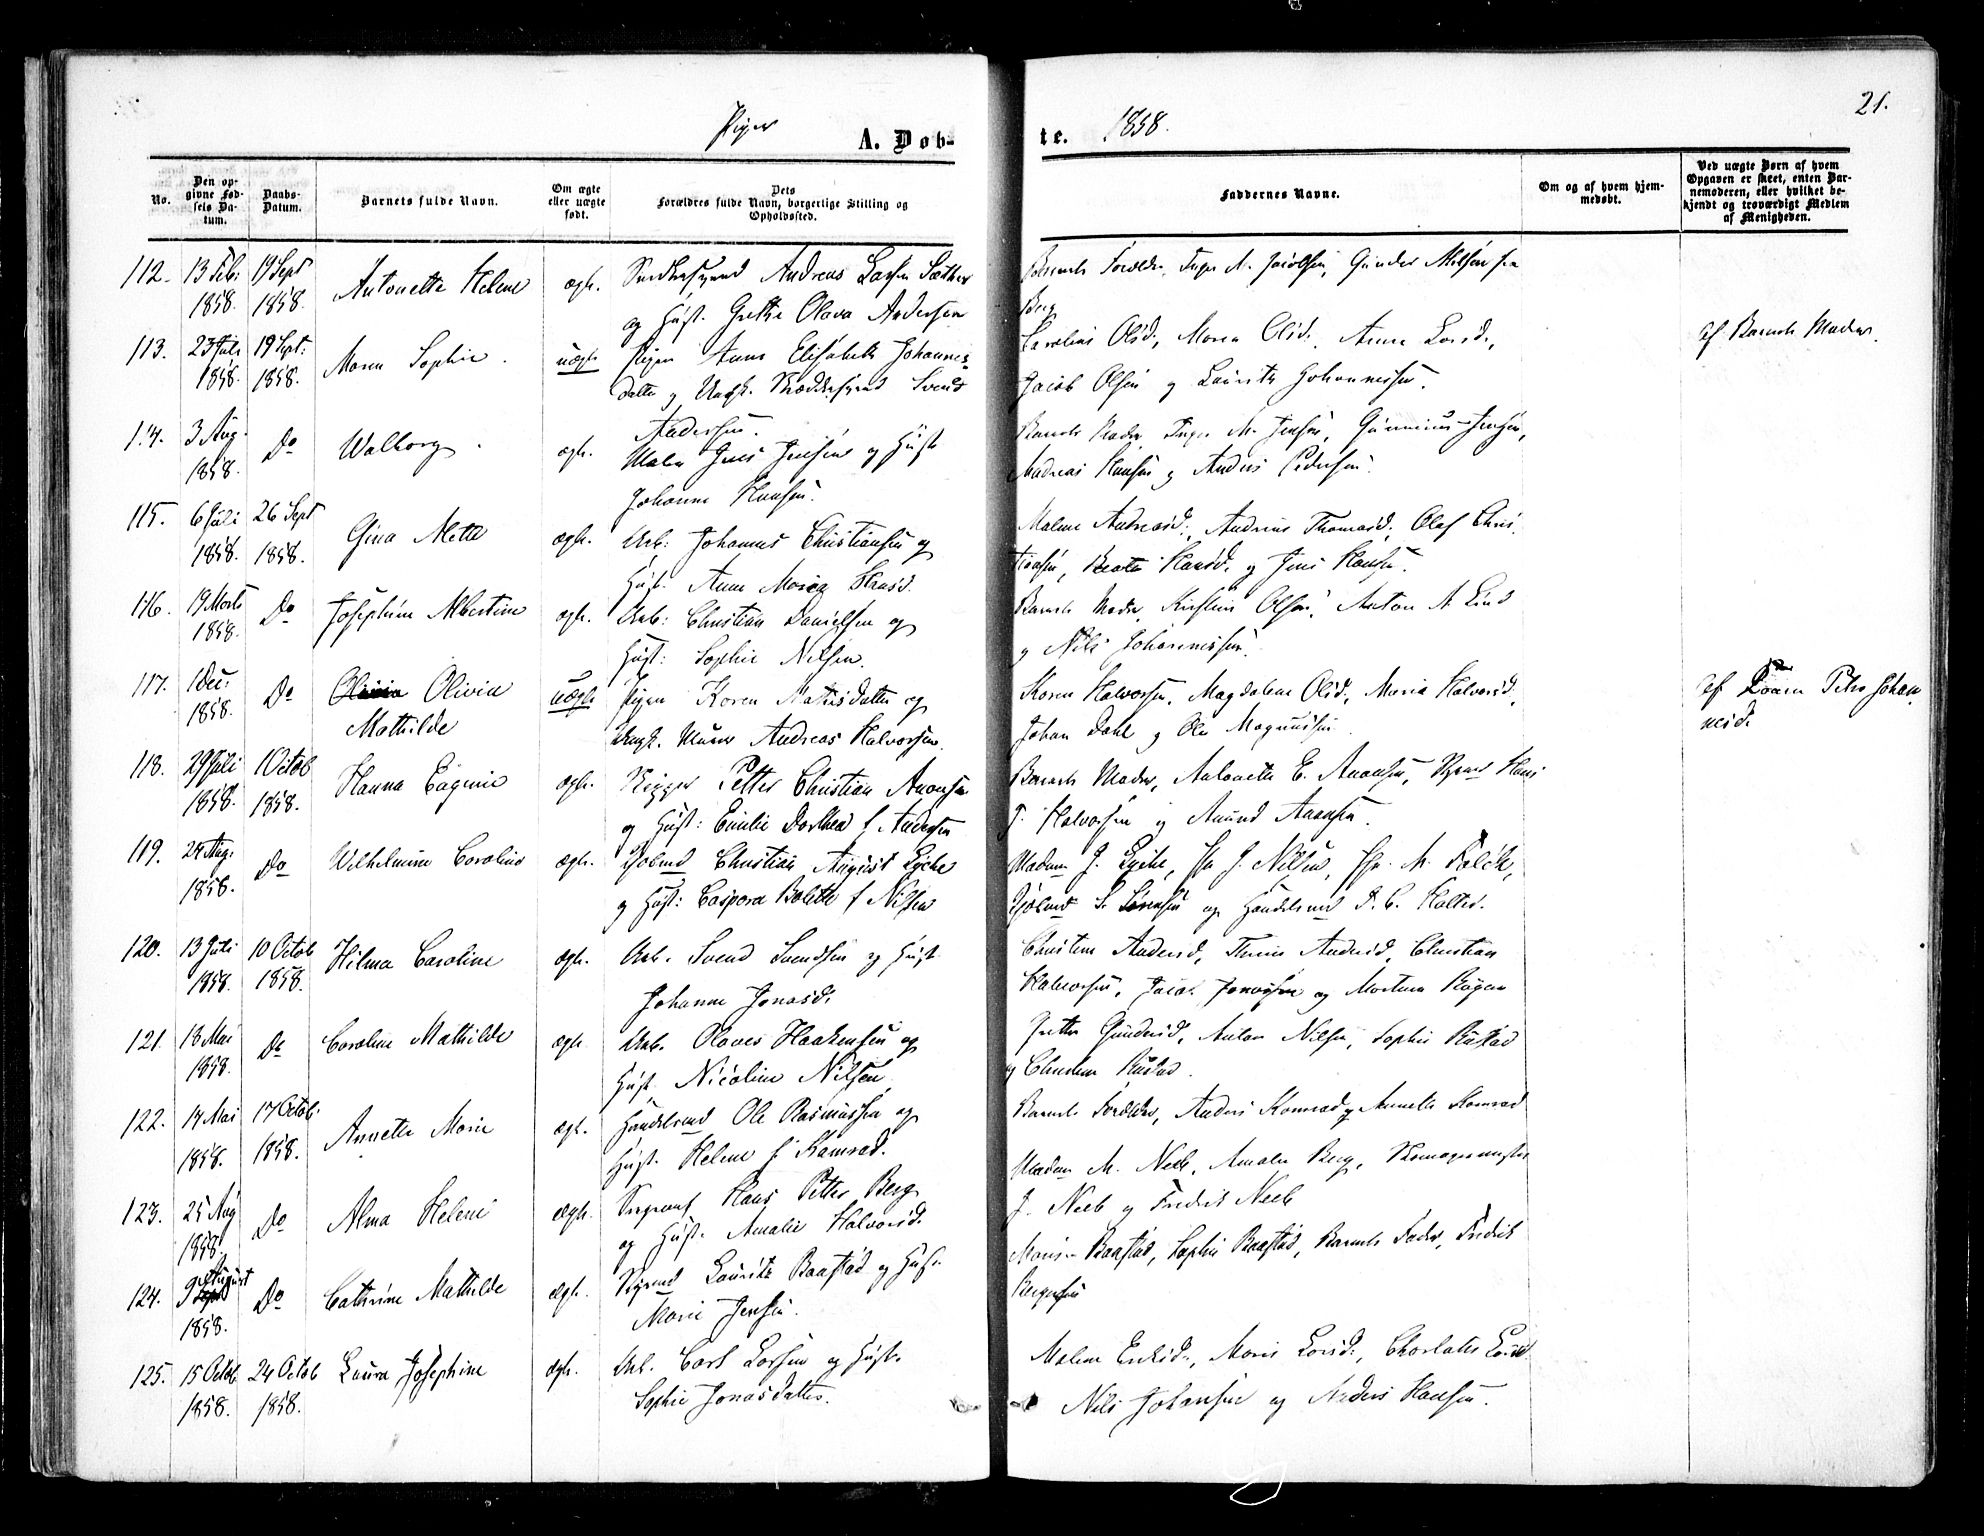 21.
Piger
A. Døb-
te. 1858.
No.
Den op-
givne Fød-
sels Da-
tum.
Daabs-
Datum.
Barnets fulde Navn.
Om ægte
eller uægte
født.
Dets
Forældres fulde Navn, borgerlige Stilling og
Opholdssted.
Faddernes Navne.
Om og af hvem hjem-
medøbt.
Ved uægte Børn af hvem
Opgaven er skeet, enten Bar-
nemoderen, eller hvilket be-
kjendt og troværdigt Medlem
af Menigheden.
112. 13 Feb: 1858. 19 Sept 1858. Antonette Helene ægte. Andreas Larsen Sæther
og Hust. Grethe Olava Andersen
Barnets Forældre, Inger M. Jacobsen, Gunder Nilsen fra
Berg
113. 23 Juli 1858. 19 Sept: 1858. Maren Sophie. uægte Pigen Anne Elisabeth Johannes-
datter og Ungk. Svend
Andersen.
Karoline Olsd., Maren Olsd., Anne Larsd.,
Jacob Olsen og Lauritz Johannessen.
af Barnets Moder.
114. 3 Aug. 1858. Do Walborg. ægte. Maler Jens Jensen og Hust
Johanne Hansen.
Barnets Moder, Inger M. Jensen, Jensen,
Andreas Hansen og Anders Pedersen.
115. 6 Juli 1858. 26 Sept 1858. Gina Mette ægte. Arb: Johannes Christiansen og
Hust. Anne Maria Hansd.
Malene Andreasd., Andrine Thomasd., Olaf Chris-
tiansen, Beate Hansd. og Jens Hansen.
116. 19 Marts 1858. Do Josephine Albertine ægte. Arb: Christian Danielsen og
Hust: Sophie Nilsen.
Barnets Moder, Kirstine Olsen, Anton A. Lind
og Nils Johannessen.
117. 1 Dec: 1858. Do Olivia Mathilde uægte Pigen Karen Datter og
Ungk. Murer Andreas Halvorsen.
Karen Halvorsen, Magdalene Olsd., Maria Halvorsd.
Johan Dahl og Ole Magnussen.
af Petra Johan-
nesd.
118. 29 Juli 1858. 1 Octob 1858. Hanna Eugenie ægte. Rigger Petter Christian Aaonsen
og Hust: Emilie Dorthea f. Andersen
Barnets Moder, Antonette E. Aaonsen, Hans
J. Halvorsen og Amund Aaonsen.
119. 24 Aug: 1858. Do Wilhelmine Caroline ægte. Christian August Eyche
og Hust: Caspara Bolette f. Nilsen
Madam J. Eyche, J. Nilsen, M. Falck,
S. Sørensen og Handelsmd P. C. Holter.
120. 13 Juli 1858. 10 Octob 1858. Hilma Caroline ægte. Arb. Svend Svendsen og Hust
Johanne Jonasd.
Christine Andersd., Andersd, Christian
Halvorsen, Jacob Jonassen og Martine Rogen
121. 18 Mai 1858. Do Caroline Mathilde ægte. Arb. Olaves Haakensen og
Hust. Nicoline Nilsen
Grethe Gundersd., Anton Nilsen, Sophie Rustad
og Rustad.
122. 14 Mai 1858. 17 Octob. 1858. Annette Marie ægte. Handelsmd Ole Rasmussen og
Hust. Helene f. Konrad.
Barnets Forældre, Anders Konrad og Annette Konrad
123. 25 Aug 1858. Do Alma Helene ægte. Sergeant Hans Petter Berg
og Hust. Amalie Halvorsd.
Madam M. Neeb, Amalie Berg, Skomagermester
J. Neeb og Fredrik Neeb
124. 9 August 1858. Do Cathrine Mathilde ægte. Lauritz Baastad og Hust.
Marie Jensen.
Baastad, Sophie Baastad, Barnets Fader, Fredrik
Bergersen
125. 15 Octob 1858. 24 Octob 1858. Laura Josephine ægte. Arb. Carl Larsen og Hust.
Sophie Jonasdatter.
Malene Eriksd., Marie Larsd., Charlotte Larsd
Nils Johansen og Anders Hansen.